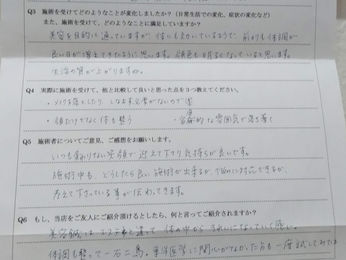 Q3 施術を受けてどのようなことが変化しましたか？（日常生活での変化、症状の変化など）
また、施術を受けて、どのようなことに満足していますか？
美容を目的に通っていますが、体にも効いているようで、前よりも体調が
良い日が増えてきたように思います。顔色も明るくなっていると思います。
生活の質が上がりますね。
Q4 実際に施術を受けて、他と比較して良いと思った点を３つ教えてください。
・メイクを落としたり
・顔だけでなく体も整う
・雰囲気が落ち着く
Q5 施術者についてご意見、ご感想をお願いします。
いつも 笑顔で迎えて下さり気持ちが良いです。
施術中も、どうしたら良い施術が出来るか、悩みに対応できるか、
考えて下さっている事が伝わってきます。
Q6 もし、当店をご友人にご紹介頂けるとしたら、何と言ってご紹介されますか？
美容鍼は エステと違って 体の中から きれいになっていく感じ。
体調も整って一石二鳥。東洋医学に関心がなかった方も一度試してみては